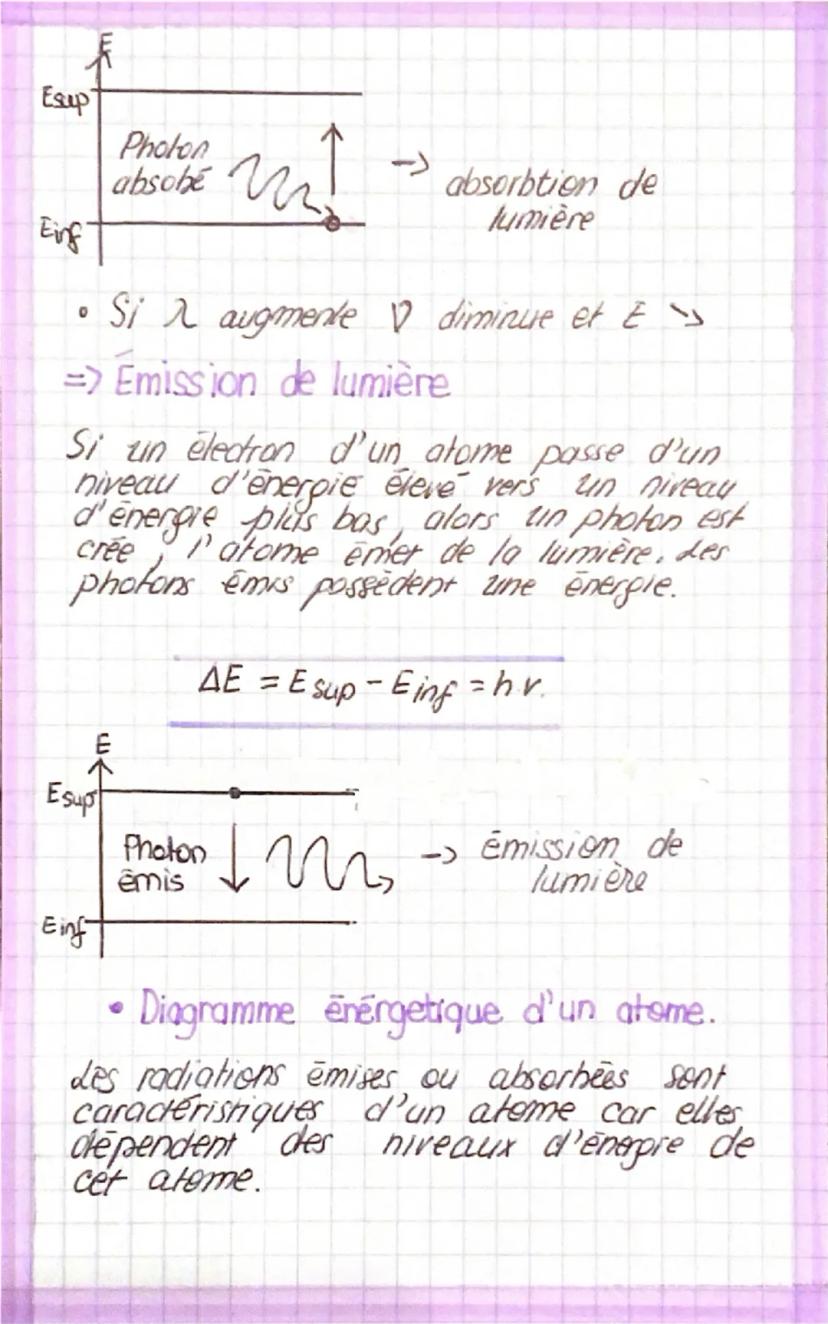 E
Esup
Photon
absobé
Einf
-> absorbtion de
lumière
• Si λ augmente ν diminue et E ↘
=> Émission de lumière
Si un électron d'un atome passe d'un
niveau d'énergie élevé vers un niveau
d'énergie plus bas, alors un photon est
crée, l'atome émet de la lumière. Les
photons émis possèdent une énergie.
ΔE = E sup - E inf = h ν.
E
E sup
Photon
émis
-> émission de
lumière
E inf
• Diagramme énérgetique d'un atome.
Les radiations émises ou absorbées sont
caractéristiques d'un atome car elles
dépendent des niveaux d'énergie de
cet atome.